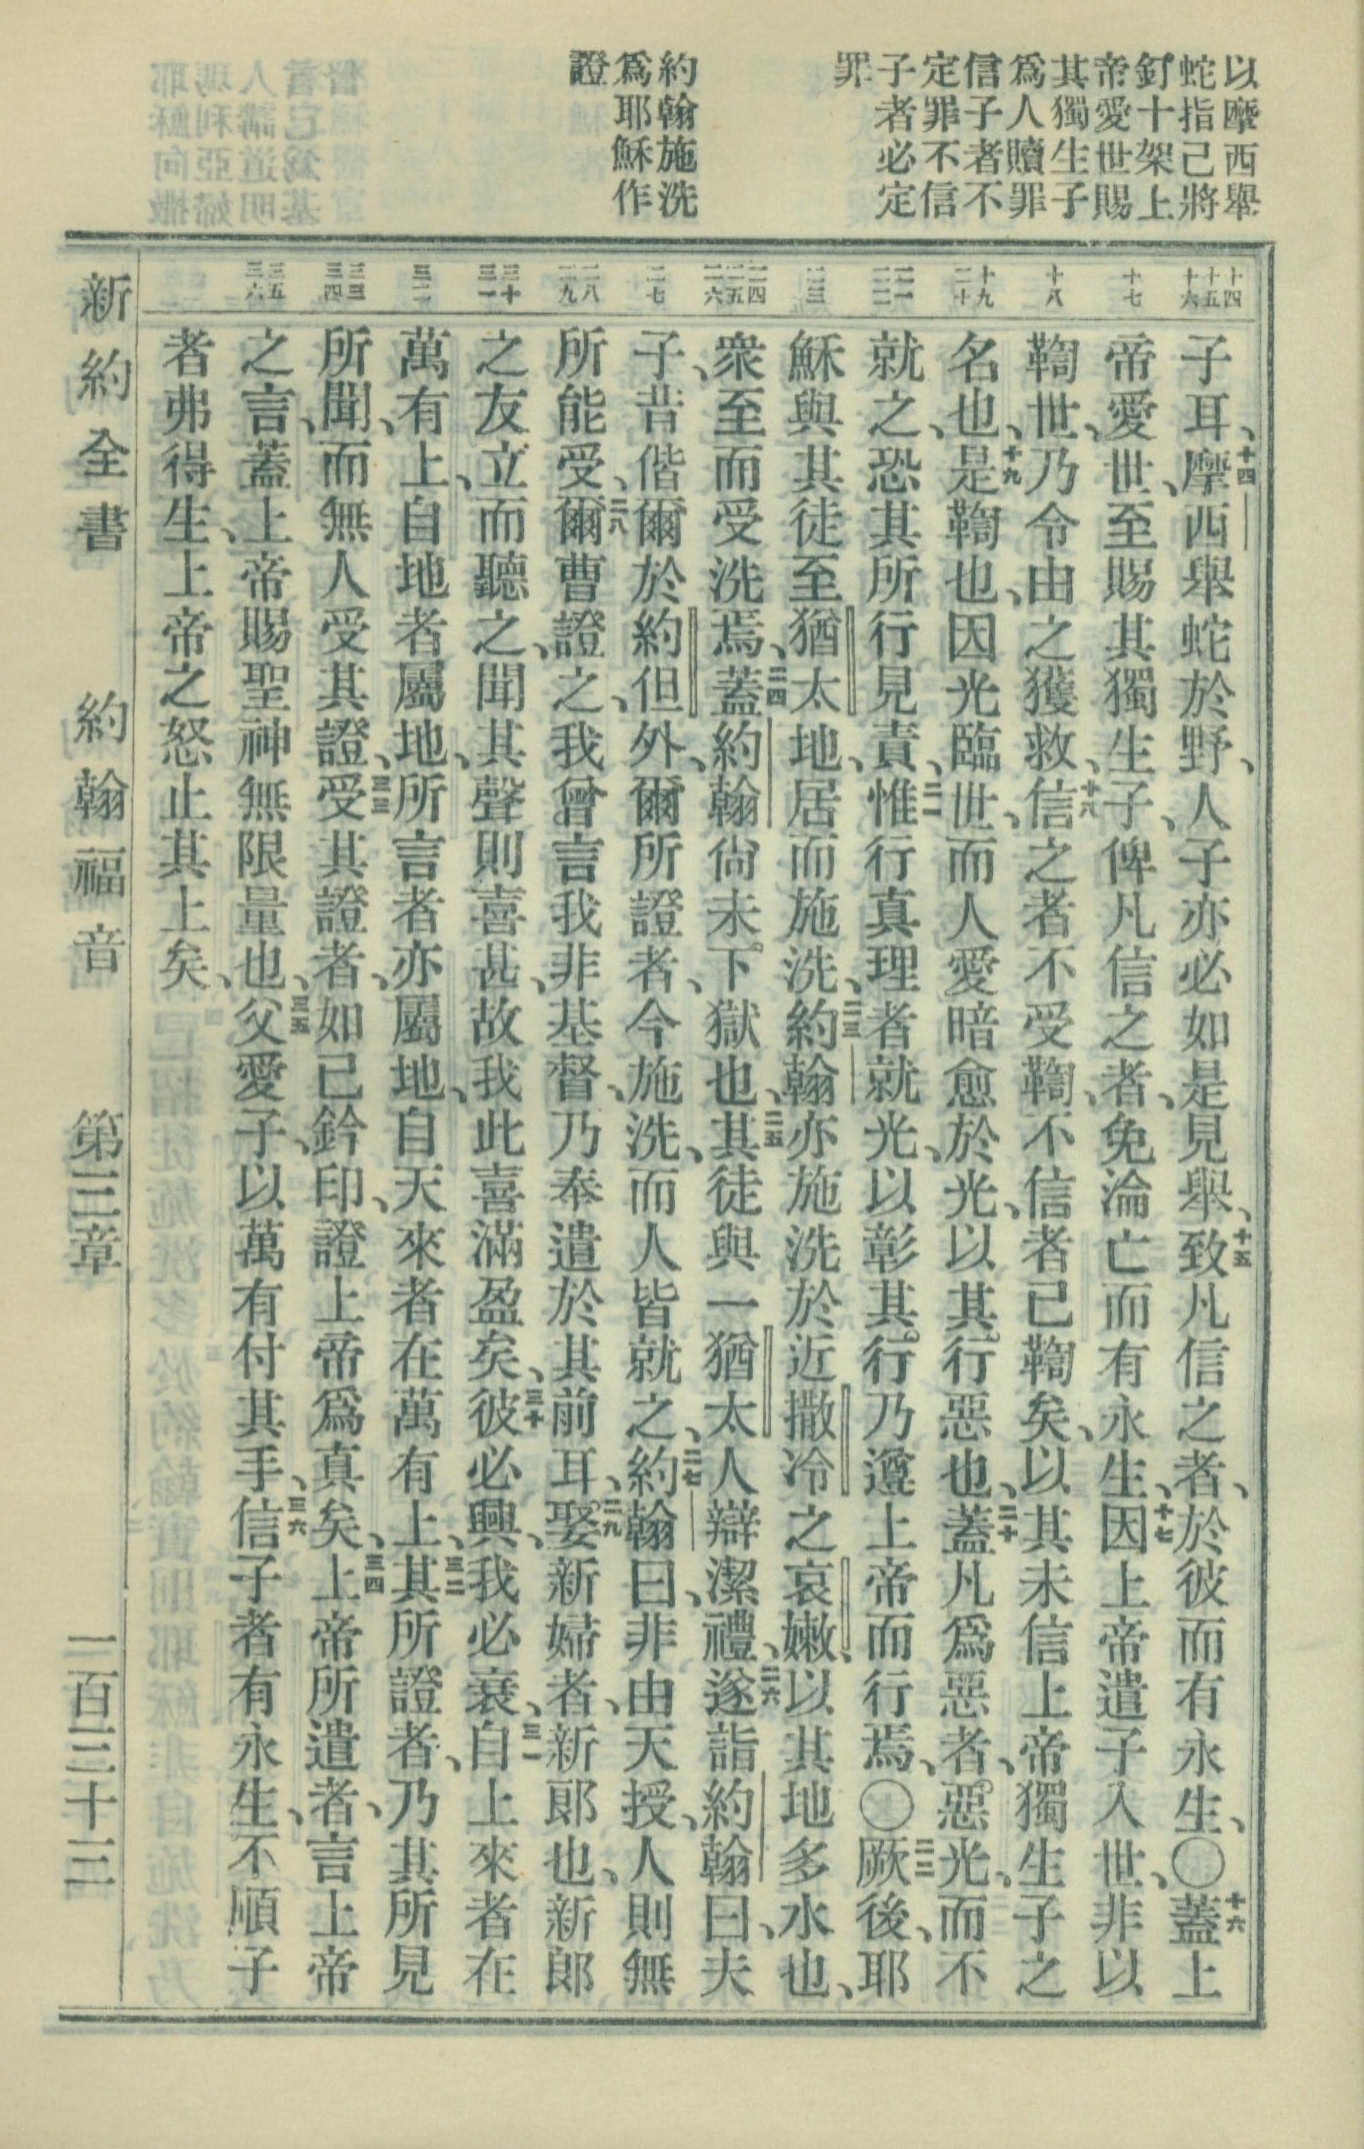 以摩西舉
蛇指己將
釘十架上
帝愛世賜
其獨生子
爲人贖罪
信子者不
定罪不信
子者必定
罪
約翰施洗
爲耶穌作
證
十四 十五 十六
十七
十八
十九 二十
二一 二二
二三
二四 二五 二六
二七
二八 二九
三十 三一
三二
三三 三四
三五 三六
子耳、十四摩西舉蛇於野、人子亦必如是見舉、十五致凡信之者、於彼而有永生、〇十六蓋上
帝愛世、至賜其獨生子、俾凡信之者、免淪亡而有永生、十七因上帝遣子入世、非以
鞫世、乃令由之獲救、十八信之者不受鞫、不信者已鞫矣、以其未信上帝獨生子之
名也、十九是鞫也、因光臨世、而人愛暗愈於光、以其行惡也、二十蓋凡爲惡者、惡光、而不
就之、恐其所行見責、二一惟行真理者就光、以彰其行、乃遵上帝而行焉、〇二二厥後、耶
穌與其徒至猶太地、居而施洗、二三約翰亦施洗於近撒冷之哀嫩、以其地多水也、
衆至而受洗焉、二四蓋約翰尚未下獄也、二五其徒與一猶太人辯潔禮、二六遂詣約翰曰、夫
子、昔偕爾於約但外、爾所證者、今施洗、而人皆就之、二七約翰曰、非由天授、人則無
所能受、二八爾曹證之、我曾言我非基督、乃奉遣於其前耳、二九娶新婦者、新郎也、新郎
之友、立而聽之、聞其聲則喜甚、故我此喜滿盈矣、三十彼必興、我必衰、三一自上來者在
萬有上、自地者屬地、所言者亦屬地、自天來者在萬有上、三二其所證者、乃其所見
所聞、而無人受其證、三三受其證者、如已鈐印、證上帝爲真矣、三四上帝所遣者、言上帝
之言、蓋上帝賜聖神無限量也、三五父愛子、以萬有付其手、三六信子者有永生、不順子
者弗得生、上帝之怒止其上矣、
新約全書　約翰福音　第三章　一百三十三